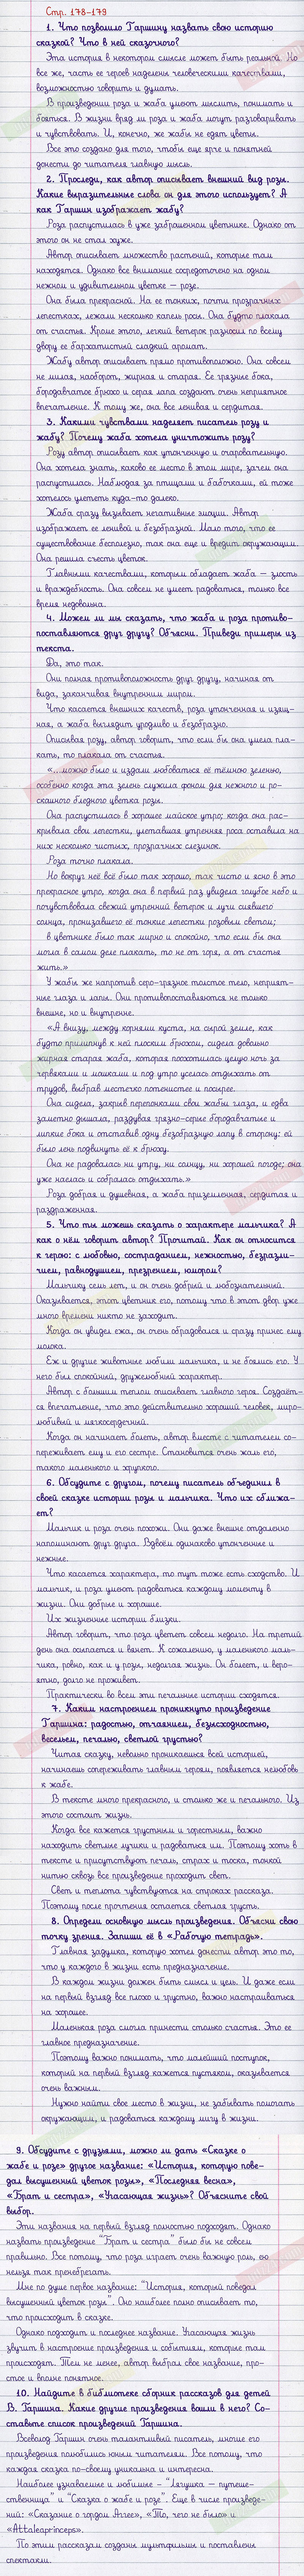 Стр. 178-179
1. Что позволило Гаршину назвать свою историю
сказкой? Что в ней сказочного?
Эта история в некотором смысле может быть реальной. Но
все же, часть ее героев наделены человеческими качествами,
возможностью говорить и думать.
В произведении роза и жаба умеют мыслить, понимать и
бояться. В жизни вряд ли роза и жаба могут разговаривать
и чувствовать. И, конечно, же жабы не едят цветы.
Все это создано для того, чтобы еще ярче и понятней
донести до читателя главную мысль.
2. Проследи, как автор описывает внешний вид розы.
Какие выразительные слова он для этого использует? А
как Гаршин изображает жабу?
Роза распустилась в уже заброшенном цветнике. Однако от
этого он не стал хуже.
Автор описывает множество растений, которые там
находятся. Однако все внимание сосредоточено на одном
нежном и удивительном цветке — розе.
Она была прекрасной. На ее тонких, почти прозрачных
лепестках, лежали несколько капель росы. Она будто плакала
от счастья. Кроме этого, легкий ветерок разносил по всему
двору ее бархатистый сладкий аромат.
Жабу автор описывает прямо противоположно. Она совсем
не милая, наоборот, жирная и старая. Ее грязные бока,
бородавчатое брюхо и серая лапа создают очень неприятное
впечатление. К тому же, она все ленивая и сердитая.
3. Какими чувствами наделяет писатель розу и
жабу? Почему жаба хотела уничтожить розу?
Розу автор описывает как утонченную и очаровательную.
Она хотела знать, каково ее место в этом мире, зачем она
распустилась. Наблюдая за птицами и бабочками, ей тоже
хотелось улететь куда-то далеко.
Жаба сразу вызывает негативные эмоции. Автор
изображает ее ленивой и безобразной. Мало того, что ее
существование бесполезно, так она еще и вредит окружающим.
Она решила съесть цветок.
Главными качествами, которыми обладает жаба — злость
и враждебность. Она совсем не умеет радоваться, только все
время недовольна.
4. Можем ли мы сказать, что жаба и роза противо-
поставляются друг другу? Объясни. Приведи примеры из
текста.
Да, это так.
Они полная противоположность друг другу, начиная от
вида, заканчивая внутренним миром.
Что касается внешних качеств, роза утонченная и изящ-
ная, а жаба выглядит уродливо и безобразно.
Описывая розу, автор говорит, что если бы она умела пла-
кать, то плакала от счастья.
«...можно было и издали любоваться её тёмною зеленью,
особенно когда эта зелень служила фоном для нежного и ро-
скошного бледного цветка розы.
Она распустилась в хорошее майское утро; когда она рас-
крывала свои лепестки, улетавшая утренняя роса оставила на
них несколько чистых, прозрачных слезинок.
Роза точно плакала.
Но вокруг неё всё было так хорошо, так чисто и ясно в это
прекрасное утро, когда она в первый раз увидела голубое небо и
почувствовала свежий утренний ветерок и лучи сиявшего
солнца, проникавшего её тонкие лепестки розовым светом;
в цветнике было так мирно и спокойно, что если бы она
могла в самом деле плакать, то не от горя, а от счастья
жить.»
У жабы же напротив серо-грязное толстое тело, неприят-
ные глаза и лапы. Они противопоставляются не только
внешне, но и внутренне.
«А внизу, между корнями куста, на сырой земле, как
будто прилипнув к ней плоским брюхом, сидела довольно
жирная старая жаба, которая проохотилась целую ночь за
червяками и мошками и под утро уселась отдыхать от
трудов, выбрав местечко потенистее и посырее.
Она сидела, закрыв перепонками свои жабьи глаза, и едва
заметно дышала, раздувая грязно-серые бородавчатые и
липкие бока и отставив одну безобразную лапу в сторону: ей
было лень подвинуть её к брюху.
Она не радовалась ни утру, ни солнцу, ни хорошей погоде; она
уже наелась и собралась отдыхать.»
Роза добрая и душевная, а жаба приземленная, сердитая и
раздраженная.
5. Что ты можешь сказать о характере мальчика? А
как о нём говорит автор? Прочитай. Как он относится
к герою: с любовью, состраданием, нежностью, безразли-
чием, равнодушием, презрением, юмором?
Мальчику семь лет, и он очень добрый и любознательный.
Оказывается, этот цветник его, потому что в этот двор уже
много времени никто не заходит.
Когда он увидел ежа, он очень обрадовался и сразу принес ему
молока.
Еж и другие животные любили мальчика, и не боялись его. У
него был спокойный, дружелюбный характер.
Автор с большим теплом описывает главного героя. Создаёт-
ся впечатление, что это действительно хороший человек, миро-
любивый и мягкосердечный.
Когда он начинает болеть, автор вместе с читателем со-
переживает ему и его сестре. Становится очень жаль его,
такого маленького и хрупкого.
6. Обсудите с другом, почему писатель объединил в
своей сказке истории розы и мальчика. Что их сближа-
ет?
Мальчик и роза очень похожи. Они даже внешне отдаленно
напоминают друг друга. Вдвоём одинаково утонченные и
нежные.
Что касается характера, то тут тоже есть сходство. И
мальчик, и роза умеют радоваться каждому моменту в
жизни. Они добрые и хорошие.
Их жизненные истории близки.
Автор говорит, что роза цветет совсем недолго. На третий
день она осыпается и вянет. К сожалению, у маленького маль-
чика, ровно, как и у розы, недолгая жизнь. Он болеет, и веро-
ятно, долго не проживет.
Практически во всем эти печальные истории сходятся.
7. Каким настроением проникнуто произведение
Гаршина: радостью, отчаянием, безысходностью,
весельем, печалью, светлой грустью?
Читая сказку, невольно проникаешься всей историей,
начинаешь сопереживать главным героям, появляется нелюбовь
к жабе.
В тексте много прекрасного, и столько же и печального. Из
этого состоит жизнь.
Когда все кажется грустным и горестным, важно
находить светлые лучики и радоваться им. Поэтому хоть в
тексте и присутствуют печаль, страх и тоска, тонкой
нитью сквозь все произведение проходит свет.
Свет и теплота чувствуются на строках рассказа.
Поэтому после прочтения остается светлая грусть.
8. Определи основную мысль произведения. Объясни свою
точку зрения. Запиши её в «Рабочую тетрадь».
Главная задумка, которую хотел донести автор это то,
что у каждого в жизни есть предназначение.
В каждом жизни должен быть смысл и цель. И даже если
на первый взгляд все плохо и грустно, важно настраиваться
на хорошее.
Маленькая роза смогла принести столько счастья. Это ее
главное предназначение.
Поэтому важно понимать, что малейший поступок,
который на первый взгляд кажется пустяком, оказывается
очень важным.
Нужно найти свое место в жизни, не забывать помогать
окружающим, и радоваться каждому мигу в жизни.
9. Обсудите с друзьями, можно ли дать «Сказке о
жабе и розе» другое название: «История, которую пове-
дал высушенный цветок розы», «Последняя весна»,
«Брат и сестра», «Угасающая жизнь»? Объясните свой
выбор.
Эти названия на первый взгляд полностью подходят. Однако
назвать произведение "Брат и сестра" было бы не совсем
правильно. Все потому, что роза играет очень важную роль, ею
нельзя так пренебрегать.
Мне по душе первое название: "История, который поведал
высушенный цветок розы". Оно наиболее полно описывает то,
что происходит в сказке.
Однако подходит и последнее название. Угасающая жизнь
звучит в настроение произведения и событиям, которые там
происходят. Тем не менее, автор выбрал свое название, про-
стое и вполне понятное.
10. Найдите в библиотеке сборник рассказов для детей
В. Гаршина. Какие другие произведения вошли в него? Со-
ставьте список произведений Гаршина.
Всеволод Гаршин очень талантливый писатель, многие его
произведения полюбились юным читателям. Все потому, что
каждая сказка по-своему уникальна и интересна.
Наиболее узнаваемые и любимые - "Лягушка — путеше-
ственница" и "Сказка о жабе и розе". Еще в числе произведе-
ний: «Сказание о гордом Аггее», «То, чего не было» и
«Attaleaprinceps».
По этим рассказам созданы мультфильмы и поставлены
спектакли.